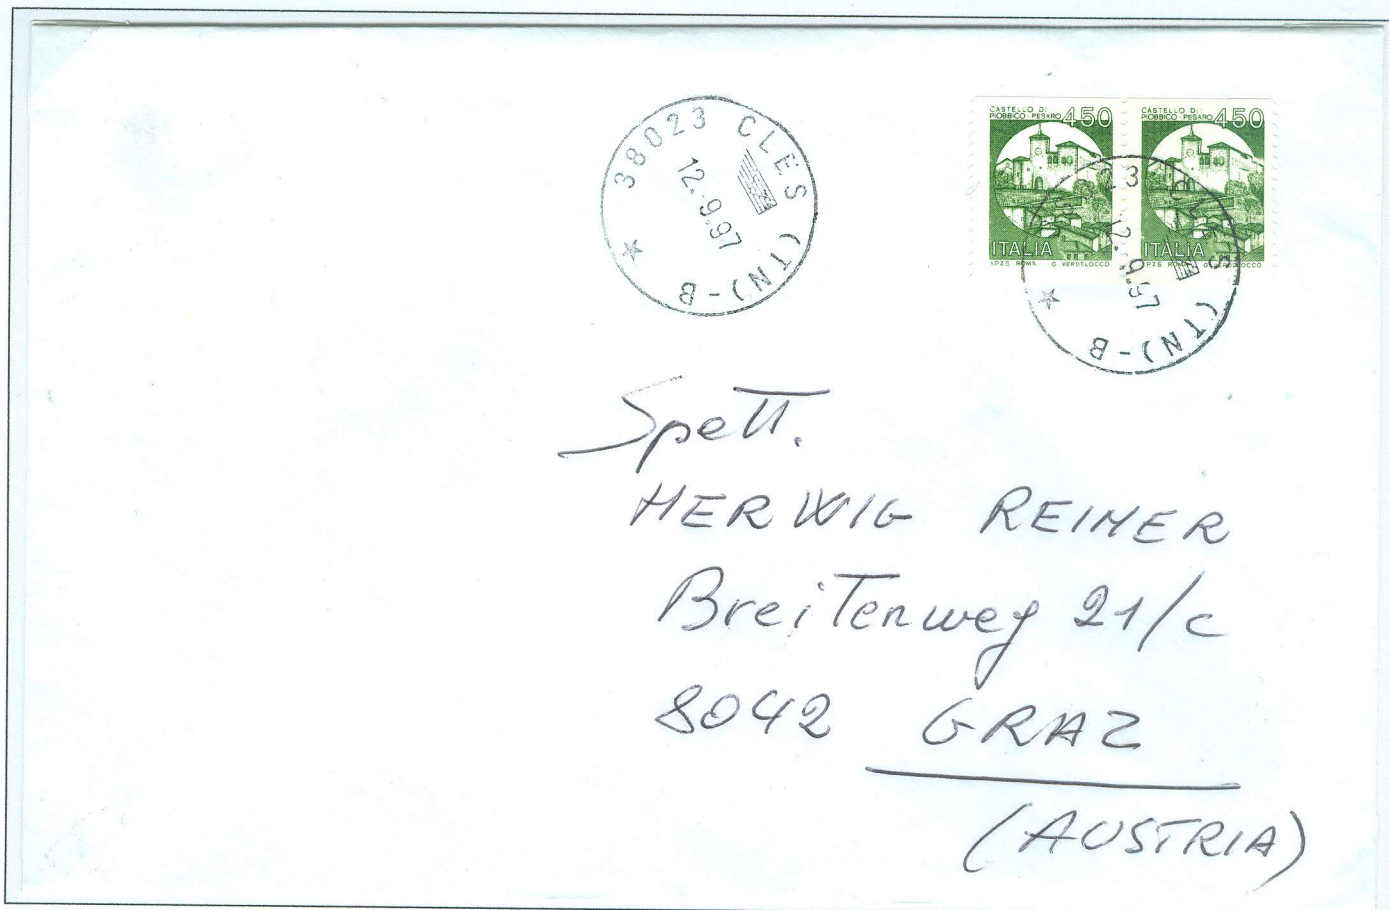 38023 CLES (TN) - B
12.9.97
CASTELLO DI
PIOBBICO - PESARO 450
ITALIA
I.P.Z.S. ROMA G. VERDELOCCO
CASTELLO DI
PIOBBICO - PESARO 450
ITALIA
I.P.Z.S. ROMA
23 CLES (TN) - B
12.9.97
Spett.
HERWIG REIMER
Breitenweg 21/c
8042 GRAZ
(AUSTRIA)